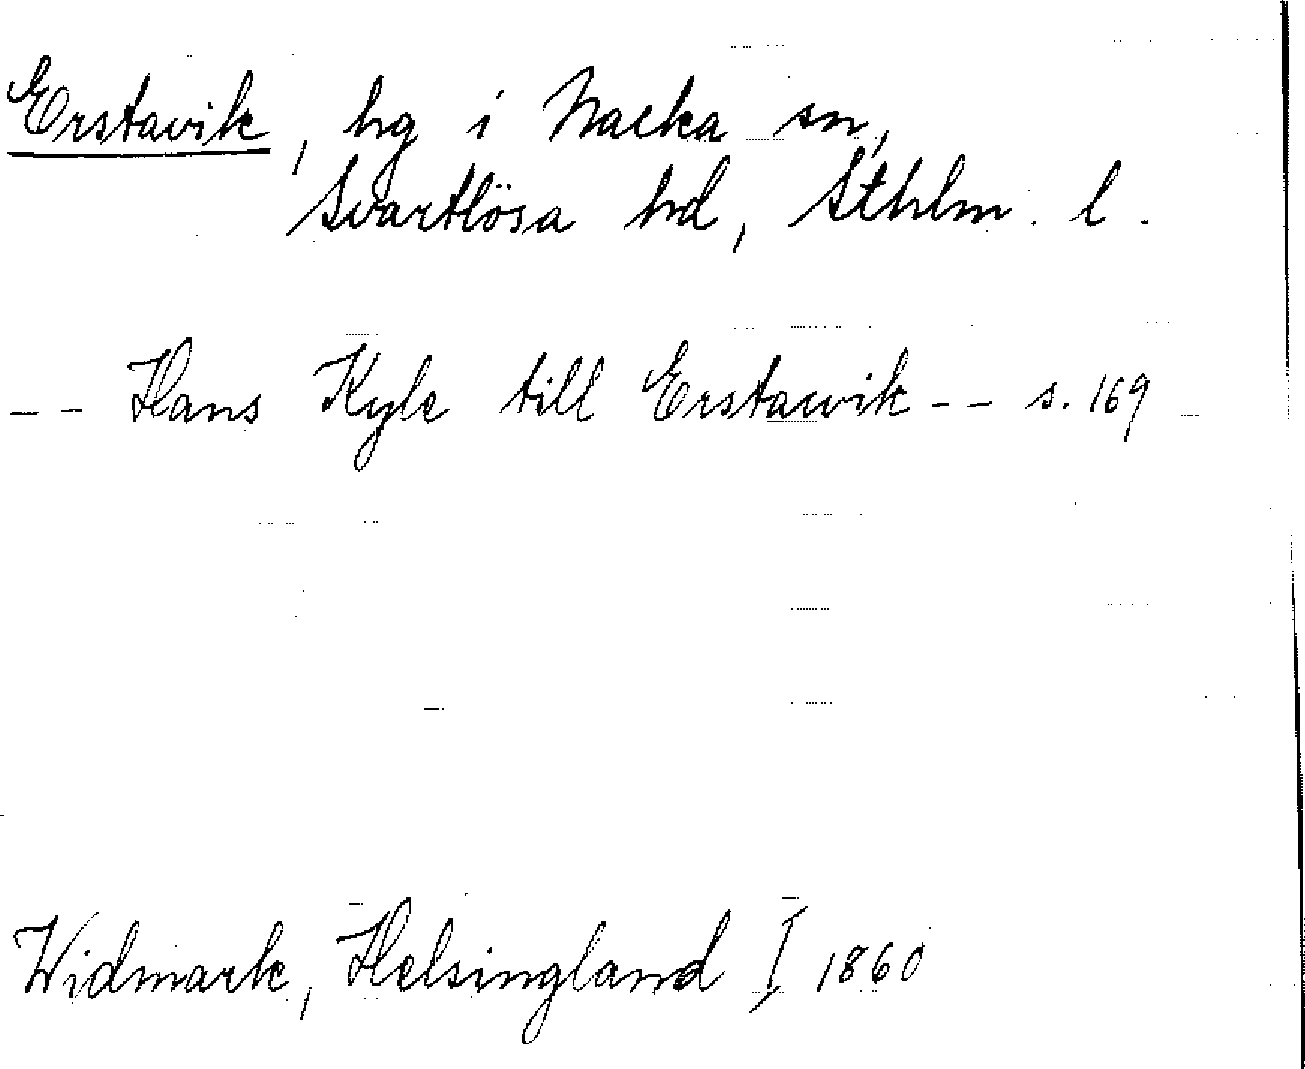 Erstavik, hg i Nacka sn,
Svartlösa hd, Sthlm. l.
-- Hans Kyle till Erstawik -- s. 169
Widmark, Helsingland I 1860